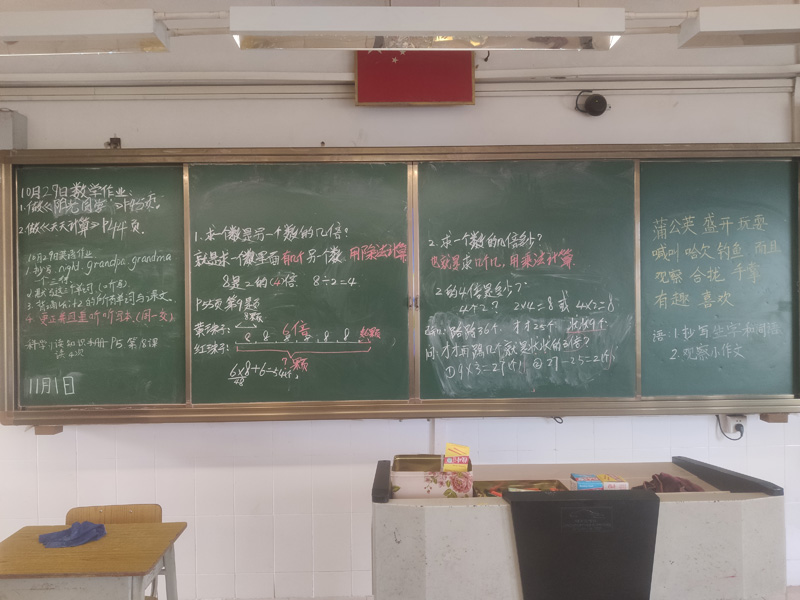 10月29日数学作业:
1.做《阳光同学》P95页。
2.做《天天计算》P44页。
10月29日英语作业
1.抄写 night. grandpa. grandma
一个三行
科学:读知识手册P5 第8课
读4次
11月1日
1.求一个数是另一个数的几倍?
就是求一个数里面有几个另一个数,用除法计算
8是2的(4)倍. 8÷2=4
P55页第9题
8颗
黄珠子:
6倍
红珠子:
8 8 8 8 8 8
?颗
6×8+6=54(个)
48
2.求一个数的几倍是多少?
也就是求几个几,用乘法计算.
2的4倍是多少?
4个2? 2×4=8或4×2=8
①9×3=27(个) ②27-25=2(个)
蒲公英 盛开 玩耍
喊叫 哈欠 钓鱼 而且
观察 合拢 手掌
有趣 喜欢
语:1.抄写生字和词语
2.观察小作文